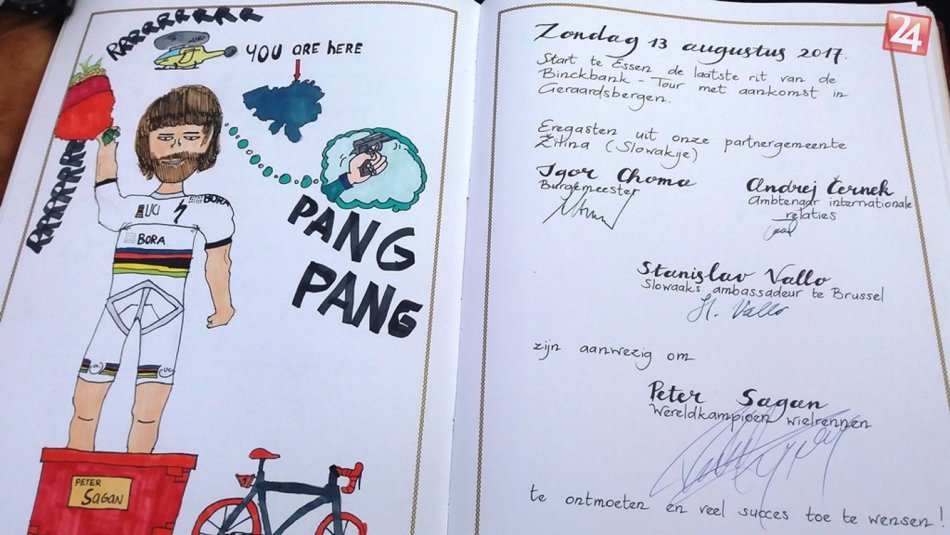 RRRRRRRRR
YOU ARE HERE
RRRRRRRR
UCI
BORA
BORA
PANG
PANG
PETER
SAGAN
24
Zondag 13 augustus 2017.
Start te Essen de laatste rit van de
Binckbank - Tour met aankomst in
Geraardsbergen.
Eregasten uit onze partnergemeente
Žilina (Slowakije)
Igor Choma
Burgemeester
Andrej Černek
Ambtenaar internationale
relaties
Stanislav Vallo
Slowaaks ambassadeur te Brussel
St. Vallo
zijn aanwezig om
Peter Sagan
Wereldkampioen wielrennen
te ontmoeten en veel succes toe te wensen!